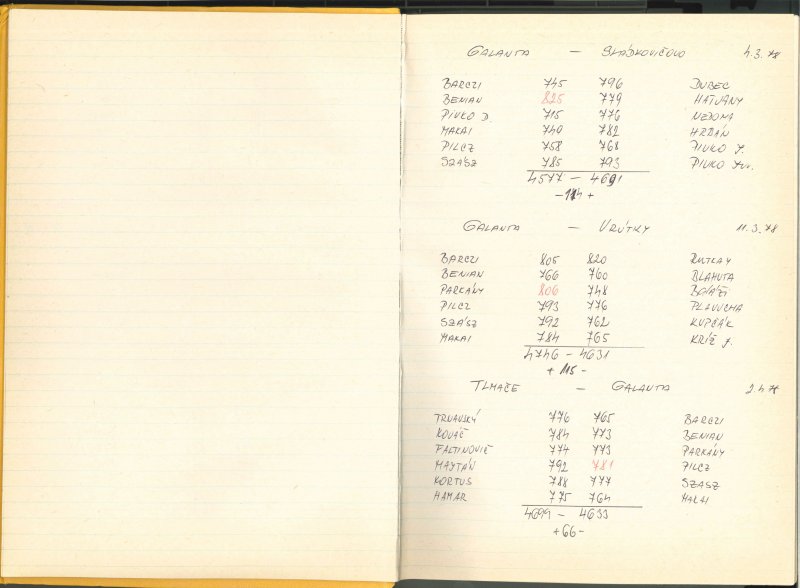 GALANTA — SLÁDKOVIČOVO 4.3.78
BARCZI 745 796 DUBEC
BENIAN 825 779 HATVÁNY
PIVKO D. 715 776 NEDOMA
MAKAI 740 782 HRDÁN
PILCZ 758 768 PIVKO J.
SZÁSZ 785 793 PIVKO Jun.
4577 — 4691
-114 +
GALANTA — VRÚTKY 11.3.78
BARCZI 805 820 RUTKAY
BENIAN 766 760 BLAHUTA
PARKÁNY 806 748 BALÁŽI
PILCZ 793 776 PLAVUCHA
SZÁSZ 792 762 KUPČÁK
MAKAI 784 765 KRÍŽ J.
4746 — 4631
+ 115 -
TLMAČE — GALANTA 2.4.78
TRNAVSKÝ 776 765 BARCZI
KOVÁČ 784 773 BENIAN
FALTINOVIČ 774 773 PARKÁNY
MAYTÁN 792 781 PILCZ
KORTUS 788 777 SZASZ
HAMAR 775 764 MAKAI
4699 — 4633
+66-